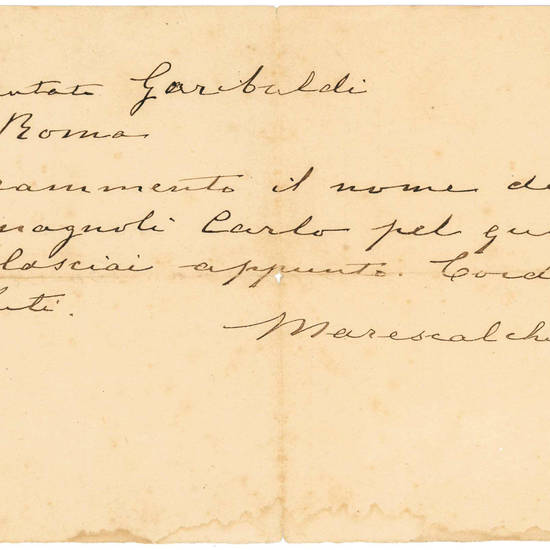 utato Garibaldi
Roma
rammento il nome de
magnoli Carlo pel qu
lasciai appunto. Cord
luti.
Marescalchi